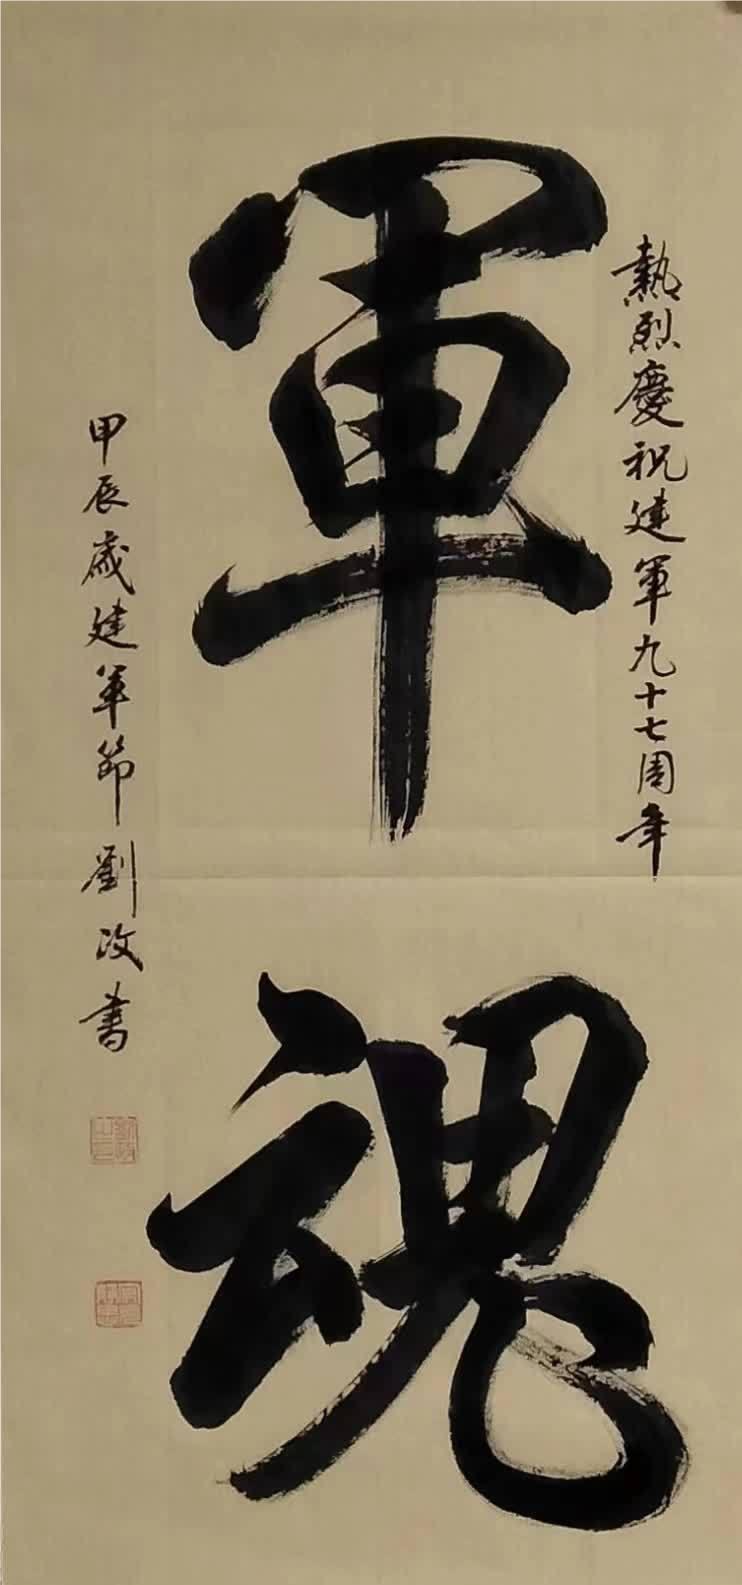 熱烈慶祝建軍九十七周年
軍魂
甲辰歲建軍節劉政書